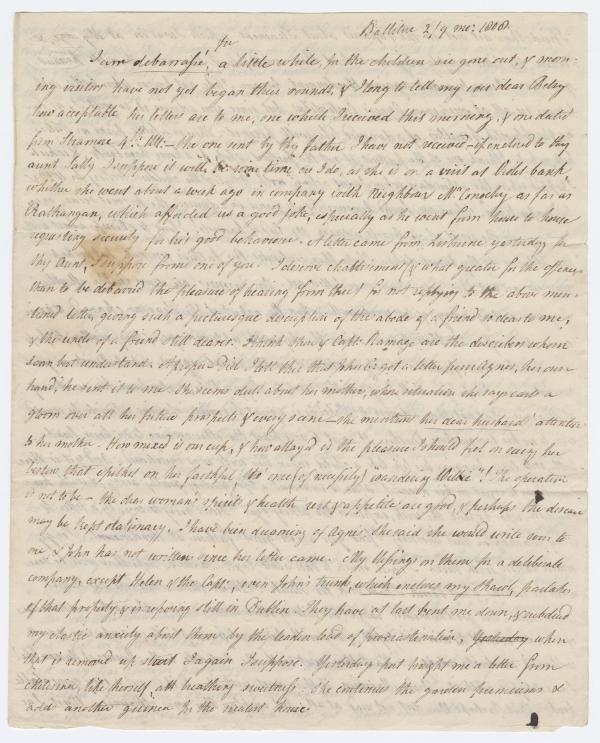 Ballitore 2/9 mo: 1808.
for
I am debarrassé, a little while, for the children are gone out, & morn-
ing visitors have not yet began their rounds, & I long to tell my ever dear Betsy
how acceptable her letters are to me, one which I received this morning, & one dated
from Stramore 4th Ult:— the one sent by thy father I have not received — if enclosed to thy
aunt Sally I suppose it will, be some time ere I do, as she is on a visit at Violet bank,
whither she went about a week ago in company with Neighbour McConochy as far as
Rathangan, which afforded us a good joke, especially as he went from house to house
requesting security for his good behaviour. A letter came from Lisburne yesterday for
thy Aunt, I suppose from one of you. I deserve chastisement (& what greater for the offence
than to be debarred the pleasure of hearing from thee) for not replying to the above men-
tioned letter, giving such a picturesque description of the abode of a friend so dear to me,
& the walks of a friend still dearer. I think thou & Captn Ramage are the describers whom
I can best understand. Apropos Did I tell thee that John G. got a letter from Agnes, her own
hand, he sent it to me. She seems dull about her mother, whose situation she says casts a
gloom over all her future prospects & every scene — she mentions her dear husband's attention
to her mother. How mixed is our cup, & how allayed is the pleasure I should feel on seeing her
bestow that epithet on her faithful, tho' one (of necessity) wandering Willie"! The operation
is not to be — the dear woman's spirits, & health rest & appetite are good, & perhaps the disease
may be kept stationary. I have been dreaming of Agnes, she said she would write soon to
me, & John has not written since her letter came. My blessings on them for a deliberate
company, except Helen & the Captn:, even John's trunk, which incloses my Shawl, partakes
of that property, & is reposing still in Dublin. They have at last bent me down, & subdued
my elastic anxiety about them by the leaden load of procrastination, Yesterday when
that is removed up start I again I suppose. Yesterday post brought me a letter from
like herself, all breathing sweetness. She continues the garden premiums &
adds another guinea for the neatest house.